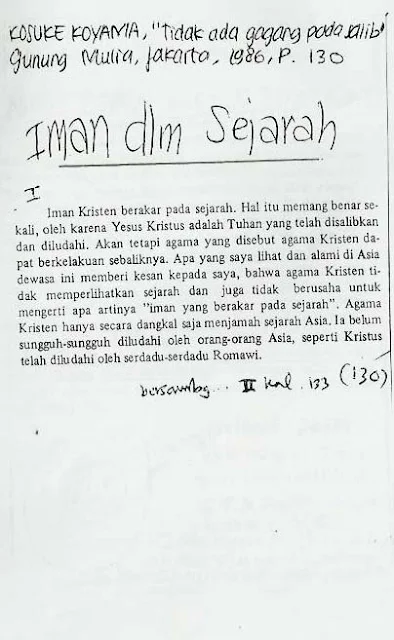 KOSUKE KOYAMA, "tidak ada gagang pada salib"
Gunung Mulia, Jakarta, 1986, P. 130
Iman dlm Sejarah
I
Iman Kristen berakar pada sejarah. Hal itu memang benar se-
kali, oleh karena Yesus Kristus adalah Tuhan yang telah disalibkan
dan diludahi. Akan tetapi agama yang disebut agama Kristen da-
pat berkelakuan sebaliknya. Apa yang saya lihat dan alami di Asia
dewasa ini memberi kesan kepada saya, bahwa agama Kristen ti-
dak memperlihatkan sejarah dan juga tidak berusaha untuk
mengerti apa artinya "iman yang berakar pada sejarah". Agama
Kristen hanya secara dangkal saja menjamah sejarah Asia. Ia belum
sungguh-sungguh diludahi oleh orang-orang Asia, seperti Kristus
telah diludahi oleh serdadu-serdadu Romawi.
bersambg... II hal. 133 (130)